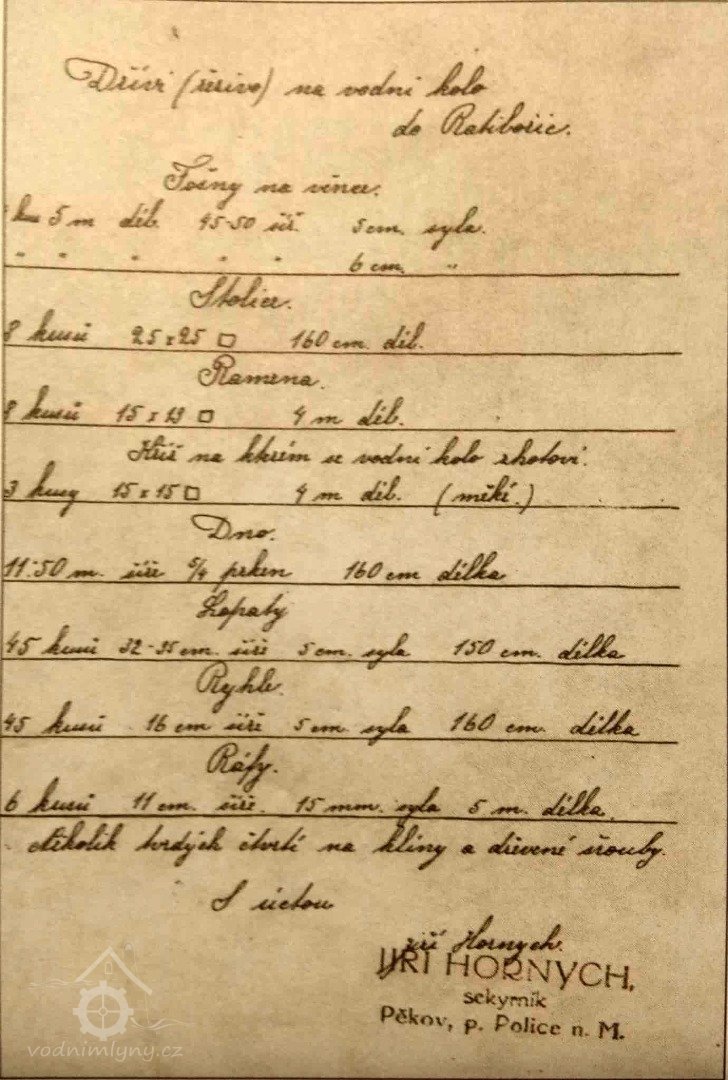 Dříví (řezivo) na vodní kolo
do Ratibořic.
Fošny na věnce.
5 m dél. 45-50 šíř. 5 cm. syla.
" " " " " 6 cm. "
Stolice.
8 kusů 25 x 25 □ 160 cm. dél.
Ramena.
8 kusů 15 x 13 □ 4 m dél.
Kříž na kterém se vodní kolo zhotoví.
3 kusy 15 x 15 □ 4 m dél. (měké.)
Dno.
11·50 m. šíře 5/4 prken 160 cm délka
Lopaty
45 kusů 32-35 cm. šíře 5 cm. syla 150 cm. délka
Ryhle.
45 kusů 16 cm šíře 5 cm. syla 160 cm. délka
Ráfy.
6 kusů 11 cm. šíře. 15 mm. syla 5 m. délka.
několik tvrdých čtvrtí na klíny a dřevené šrouby.
S úctou
Jiří Hornych.
JIŘÍ HORNYCH,
sekyrník
Pěkov, p. Police n. M.
vodnimlyny.cz